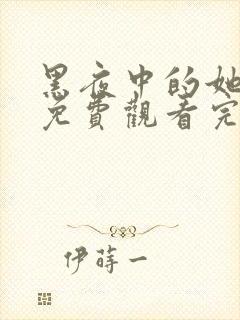 黑夜中的她
免費觀看完
伊蒔一